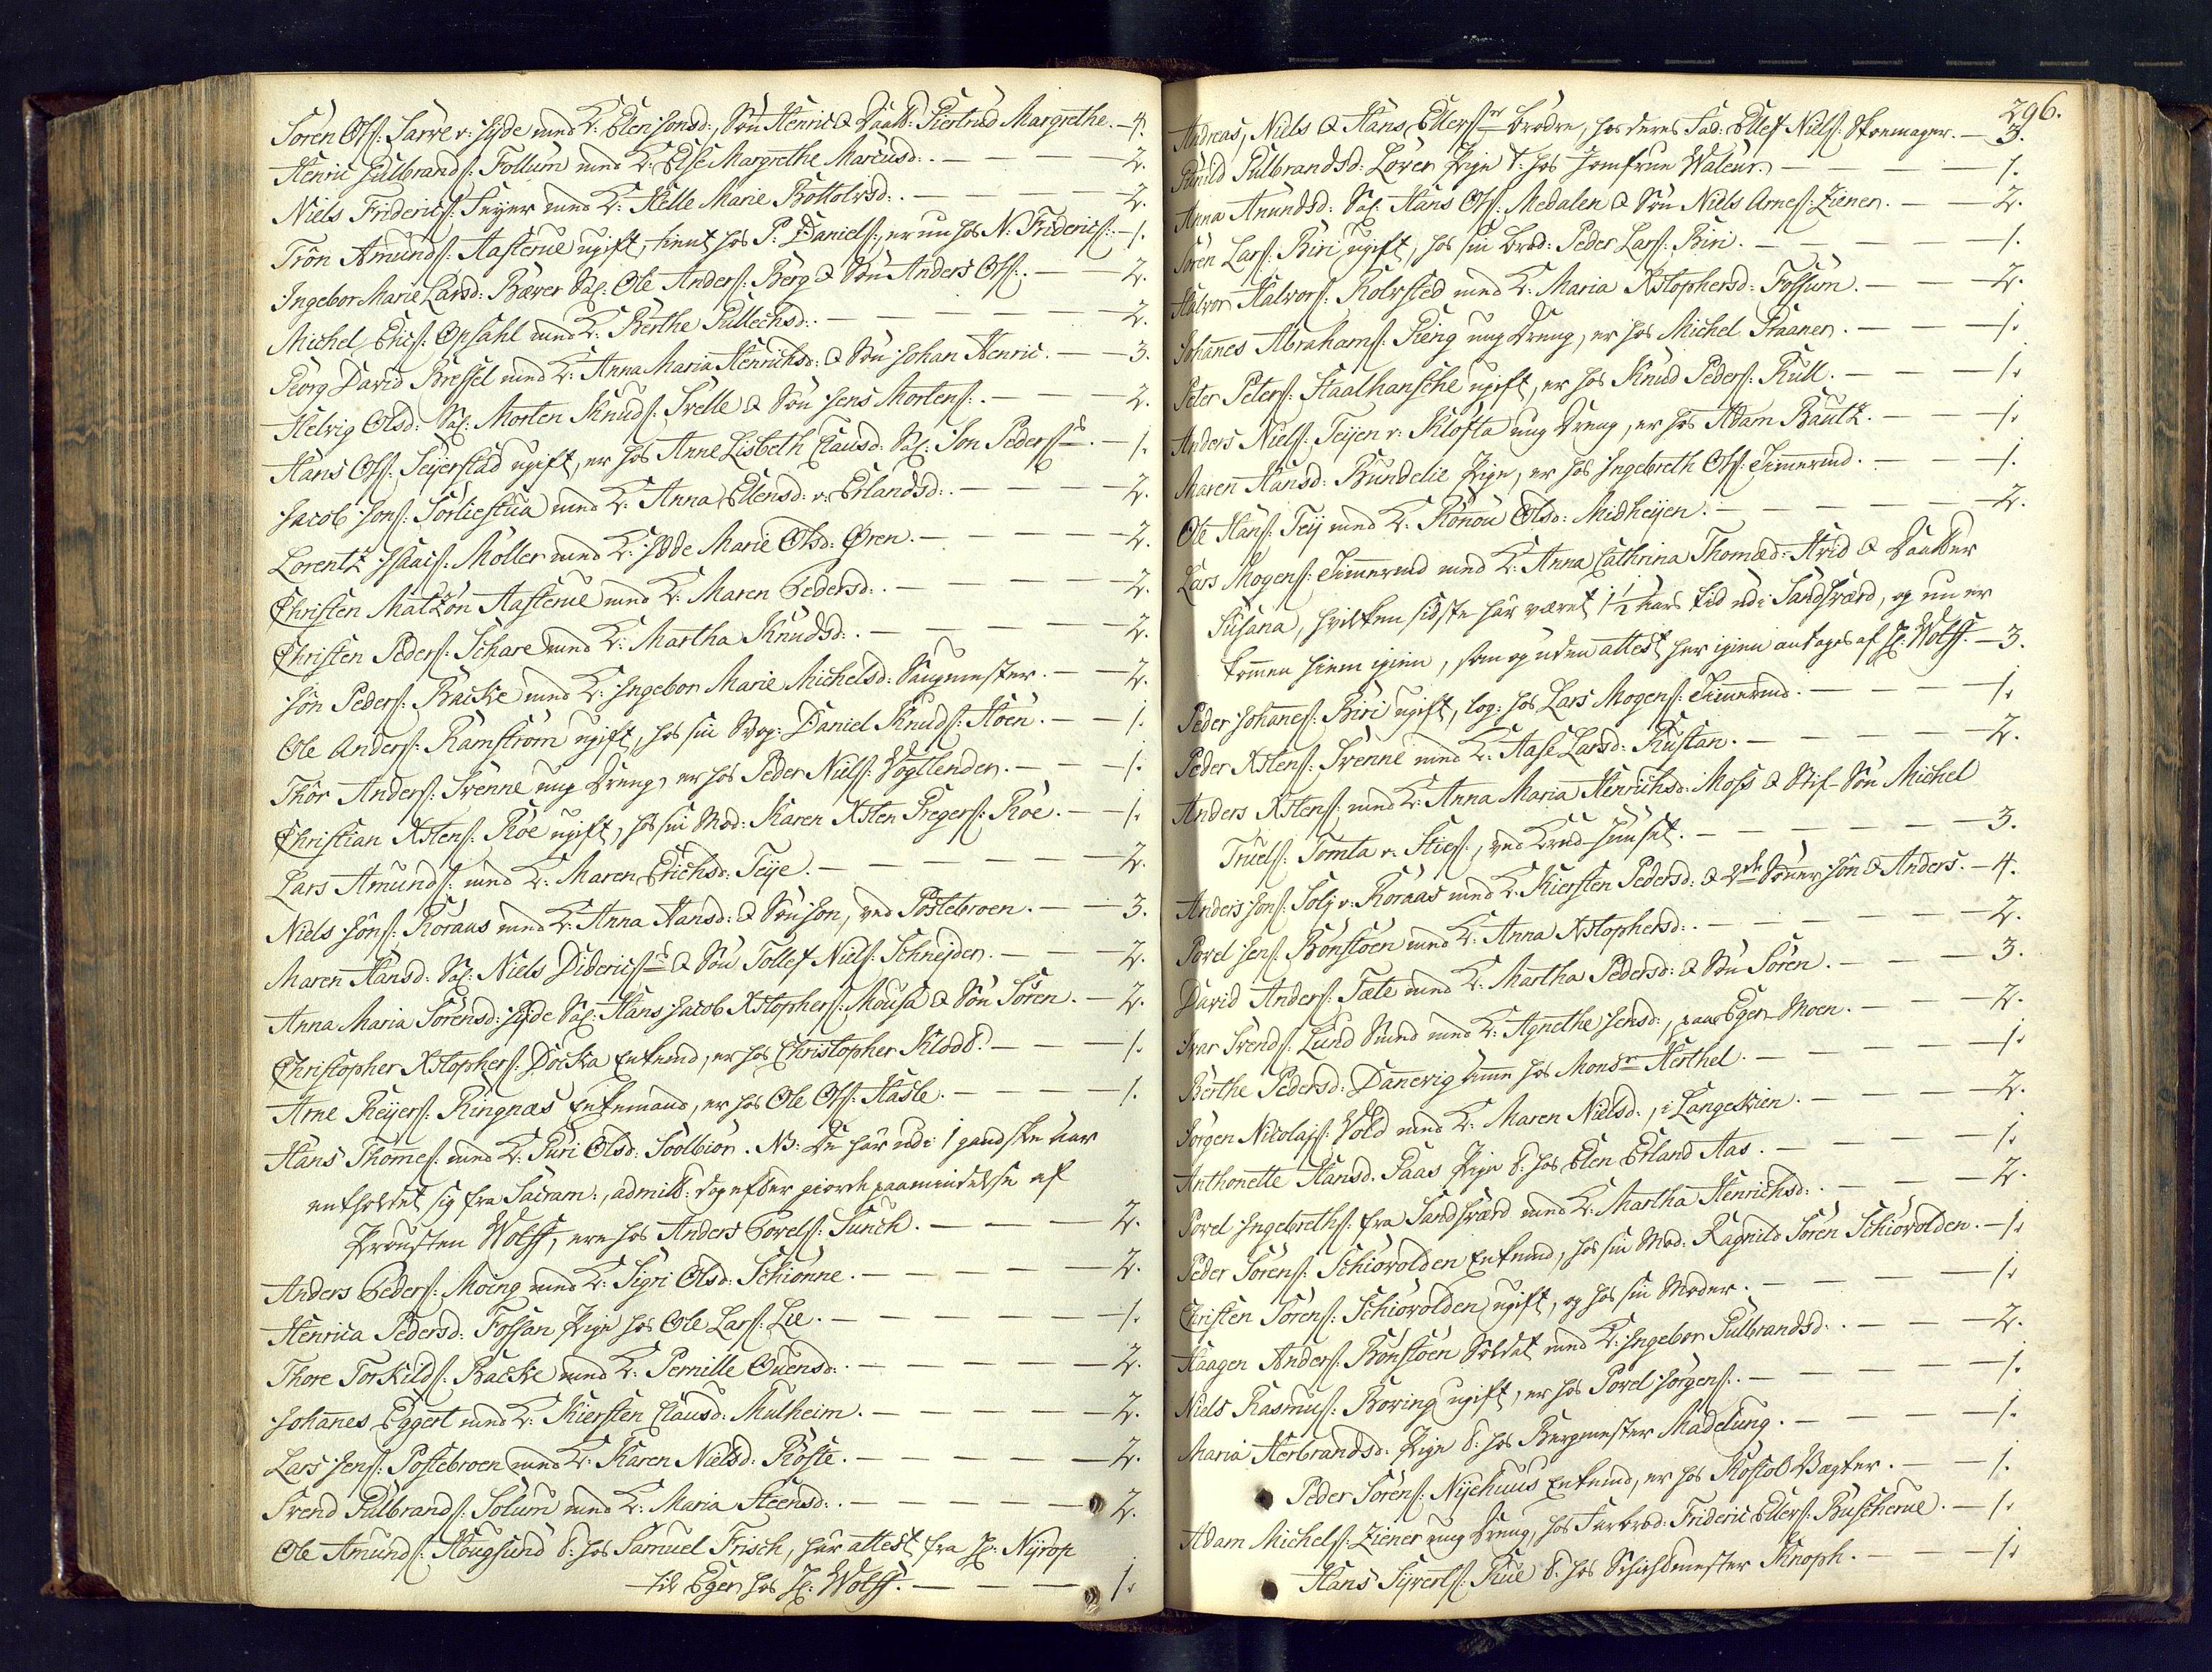 Sören Olſ: Sarve v: Hyde med K: Elen Jonsd:, Sön Henric & Daatt: Giertrud Margrethe. — 4.
Henric Gulbrandſ: Follum med K: Else Margrethe Marcusd:. — 2.
Niels Fridericſ: Seyer med K: Helle Marie Bottolvsd:. — 2.
Trön Amundſ: Aasterue ugift, tient hos P: Danielſ:, er nu hos N: Fridericſ: — 1.
Ingebor Marie Larsd: Bæver Sal: Ole Anderſ: Berg & Sön Anders Olſ:. — 2.
Michel Ericſ: Opsahl med K: Berthe Gullechsd:. — 2.
Georg David Bressel med K: Anna Maria Henrichsd: & Sön Johan Henric. — 3.
Helvig Olsd: Sal: Morten Knudſ: Svelle & Sön Jens Mortenſ:. — 2.
Hans Olſ: Seyerstad ugift, er hos Anne Lisbeth Clausd: Sal: Jon Pederſ:. — 1.
Jacob Jonſ: Sorliestua med K: Anna Ellensd: v: Erlandsd:. — 2.
Lorentz Isaacſ: Möller med K: Hede Marie Olsd: Øren. — 2.
Christen Matzön Aasterue med K: Maren Pedersd:. — 2.
Christen Pederſ: Schare med K: Martha Knudsd:. — 2.
Jön Pederſ: Backe med K: Ingebor Marie Michelsd: Saugmester. — 2.
Ole Anderſ: Ramström ugift, hos sin Svog: Daniel Knudſ: Hoen. — 1.
Thör Anderſ: Svenne ung Dreng, er hos Peder Nielſ: Vogtlender. — 1.
Christian Xstenſ: Röe ugift, hos sin Mod: Karen Xsten Gregerſ: Röe. — 1.
Lars Amundſ: med K: Maren Erichsd: Teije. — 2.
Niels Jönſ: Röraas med K: Anna Hansd: & Sön Jon, ved Postebroen. — 3.
Maren Hansd: Sal: Niels Didericſ: & Sön Tollef Nielſ: Schnejder. — 2.
Anna Maria Sörensd: Hyde Sal: Hans Jacob Xstopherſ: Mousa & Sön Sören. — 2.
Christopher Xstopherſ: Docka Enkemd, er hos Christopher Klodd. — 1.
Arne Reijerſ: Ringnæs Enkemand, er hos Ole Olſ: Hasle. — 1.
Hans Thommeſ: med K: Guri Olsd: Soolbiör. NB: De har udi 1 gandske Aar
entholdet sig fra Sacram:, admitt: dog efter giorde paamindelse af
Prousten Wolff, ere hos Anders Povelſ: Funch. — 2.
Anders Pederſ: Moeng med K: Sigri Olsd: Schionne. — 2.
Henrica Pedersd: Fossan Pige hos Ole Larſ: Lie. — 1.
Thore Torkildſ: Backe med K: Pernille Ouensd:. — 2.
Johannes Eggert med K: Kiersten Clausd: Mulheim. — 2.
Lars Jenſ: Postebroen med K: Karen Nielsd: Röste. — 2.
Svend Gulbrandſ: Solum med K: Maria Steensd:. — 2.
Ole Amundſ: Hougsund t: hos Samuel Frisch, har attest fra H: Nyrop
til Eger hos H: Wolff. — 1.
296.
Andreas, Niels & Hans Ellefſ: Brödre, hos deres Fad: Ellef Nielſ: Skomager. — 3.
Gunild Gulbrandsd: Löver Pige t: hos Jomfrue Waleur. — 1.
Anna Anundsd: Sal: Hans Olſ: Medalen & Sön Niels Arneſ: Ziener. — 2.
Sören Larſ: Biri ugift, hos sin Brod: Peder Larſ: Biri. — 1.
Halvor Halvorſ: Kolvsted med K: Maria Xstophersd: Fossum. — 2.
Johannes Abrahamſ: Rieng ung Dreng, er hos Michel Praanen. — 1.
Peter Peterſ: Staalhansche ugift, er hos Knud Pederſ: Kull. — 1.
Anders Nielſ: Teijen v: Klöfta ung Dreng, er hos Adam Bautz. — 1.
Maren Hansd: Bundelie Pige, er hos Ingebreth Olſ: Timerud. — 1.
Ole Hanſ: Teij med K: Rönnou Olsd: Midheijen. — 2.
Lars Mogenſ: Timerud med K: Anna Cathrina Thomæd: Hvid & Daatter
Susana, hvilken sidste har været 1½ Aars tid udi Sandsværd, og nu er
kommen hiem igien, som og uden attest her igien antages af H: Wolff. — 3.
Peder Johanneſ: Biri ugift, log: hos Lars Mogenſ: Timerud. — 1.
Peder Xstenſ: Svenne med K: Aase Larsd: Rustan. — 2.
Anders Xstenſ: med K: Anna Maria Henrichsd: Moss & Stif-Sön Michel
Truelſ: Tomta v: Stieſ:, ved Krud-Huuset. — 3.
Anders Jonſ: Solj v: Roraas med K: Kiersten Pedersd: & 2de Sönner Jön & Anders. — 4.
Povel Jenſ: Bönstöen med K: Anna Xstophersd:. — 2.
David Anderſ: Tæte med K: Martha Pedersd: & Sön Sören. — 3.
Ivar Svendſ: Lund Smed med K: Agnethe Jensd:, paa Eger-Moen. — 2.
Berthe Pedersd: Dannevig Amme hos Monsr Herthel. — 1.
Jörgen Nicolajſ: Vold med K: Maren Nielsd:, i Langeskien. — 2.
Anthonette Hansd. Paas Pige t: hos Elen Erland Aas. — 1.
Povel Ingebrethſ: fra Sandsværd med K: Martha Henrichsd:. — 2.
Peder Sörenſ: Schiövolden Enkemd, hos sin Mod: Ragnild Sören Schiövolden. — 1.
Christen Sörenſ: Schiövolden ugift, og hos sin Moder. — 1.
Haagen Anderſ: Bönstöen Soldat med K: Ingebor Gulbrandsd:. — 2.
Niels Rasmuſ: Boving ugift, er hos Povel Jörgenſ:. — 1.
Maria Herbrandsd: Pige t: hos Bergmester Madelung. — 1.
Peder Sörenſ: Nyehuus Enkemd, er hos Kostol Vægter. — 1.
Adam Michelſ: Ziener ung Dreng, hos Farbrod: Frideric Ellefſ: Buscherue. — 1.
Hans Syvertſ: Rue t: hos Schichtmester Knoph. — 1.